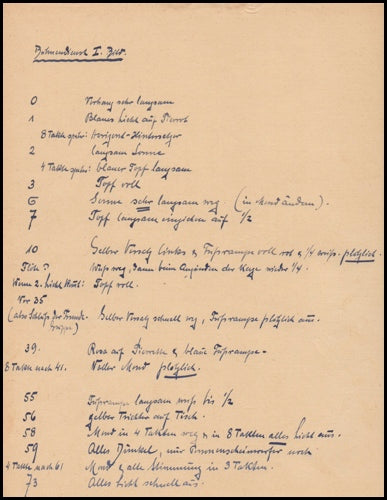 Bühnendienst I. Bild.
0 Vorhang sehr langsam
1 Blaues Licht auf Pierrot
8 Takte später:
2 langsam Sonne
4 Takte später: blauer Topf langsam
3 Topf voll
6 Sonne sehr langsam weg (in Mond ändern).
7 Topf langsam einziehen auf 1/2
10 Gelber Versatz links & Fußrampe voll rot & 1/4 weiß. plötzlich.
Flöte? Weiß weg, dann beim Anzünden der Kerze wieder 1/4.
Wenn 2. Licht : Topf voll.
Vor 35
(also Schluß der Gelber Versatz schnell weg, Fußrampe plötzlich aus.
39. Rosa auf Pierrette & blaue Fußrampe.
8 Takte nach 41. Voller Mond plötzlich.
55 Fußrampe langsam weiß bis 1/2
56 gelber Trichter auf Tisch.
58 Mond in 4 Takten weg & in 8 Takten alles Licht aus.
59 Alles Dunkel, nur noch
4 Takte nach 61 Mond & alte Stimmung in 3 Takten.
73 Alles Licht schnell aus.